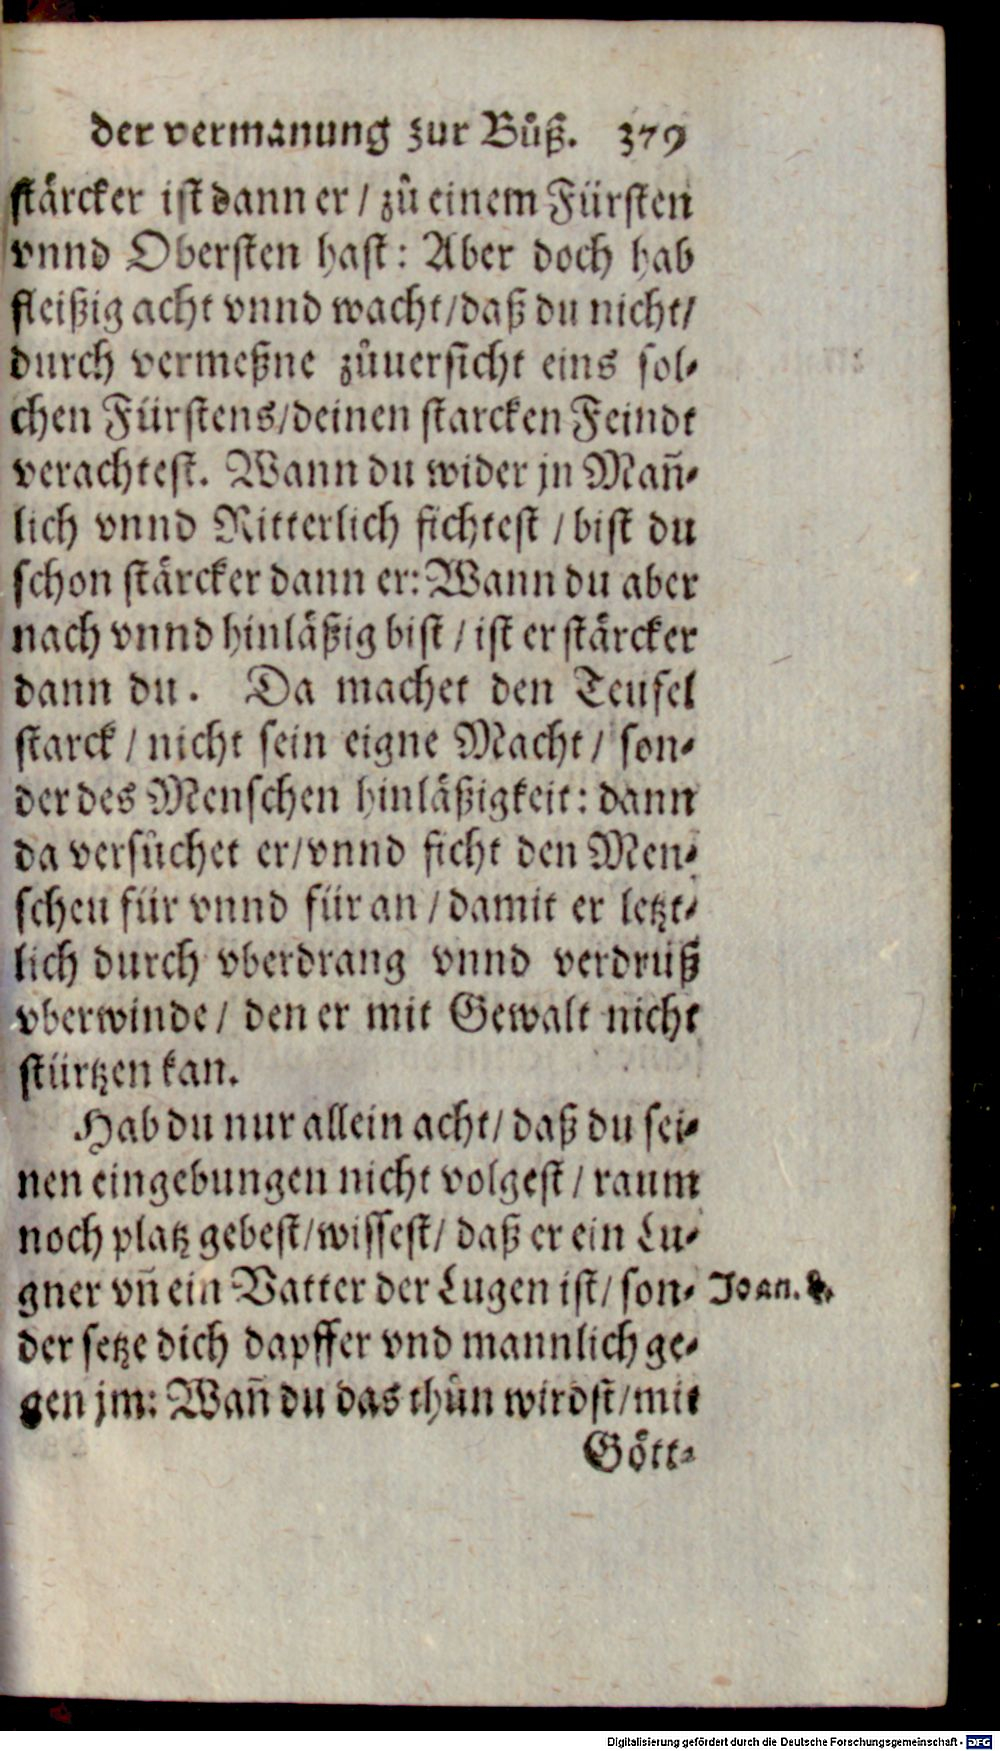 der vermanung zur Bůß. 379
stärcker ist dann er / zů einem Fürsten
vnnd Obersten hast: Aber doch hab
fleißig acht vnnd wacht / daß du nicht /
durch vermeßne zůuersicht eins sol-
chen Fürstens / deinen starcken Feindt
verachtest. Wann du wider jn Mañ-
lich vnnd Ritterlich fichtest / bist du
schon stärcker dann er: Wann du aber
nach vnnd hinläßig bist / ist er stärcker
dann du. Da machet den Teufel
starck / nicht sein eigne Macht / son-
der des Menschen hinläßigkeit: dann
da versůchet er / vnnd ficht den Men-
schen für vnnd für an / damit er letzt-
lich durch vberdrang vnnd verdruß
vberwinde / den er mit Gewalt nicht
stürtzen kan.
Hab du nur allein acht / daß du sei-
nen eingebungen nicht volgest / raum
noch platz gebest / wissest / daß er ein Lu-
gner vñ ein Vatter der Lugen ist / son- Joan. 8.
der setze dich dapffer vnd mannlich ge-
gen jm: Wañ du das thůn wirdst / mit
Gött-
Digitalisierung gefördert durch die Deutsche Forschungsgemeinschaft - DFG